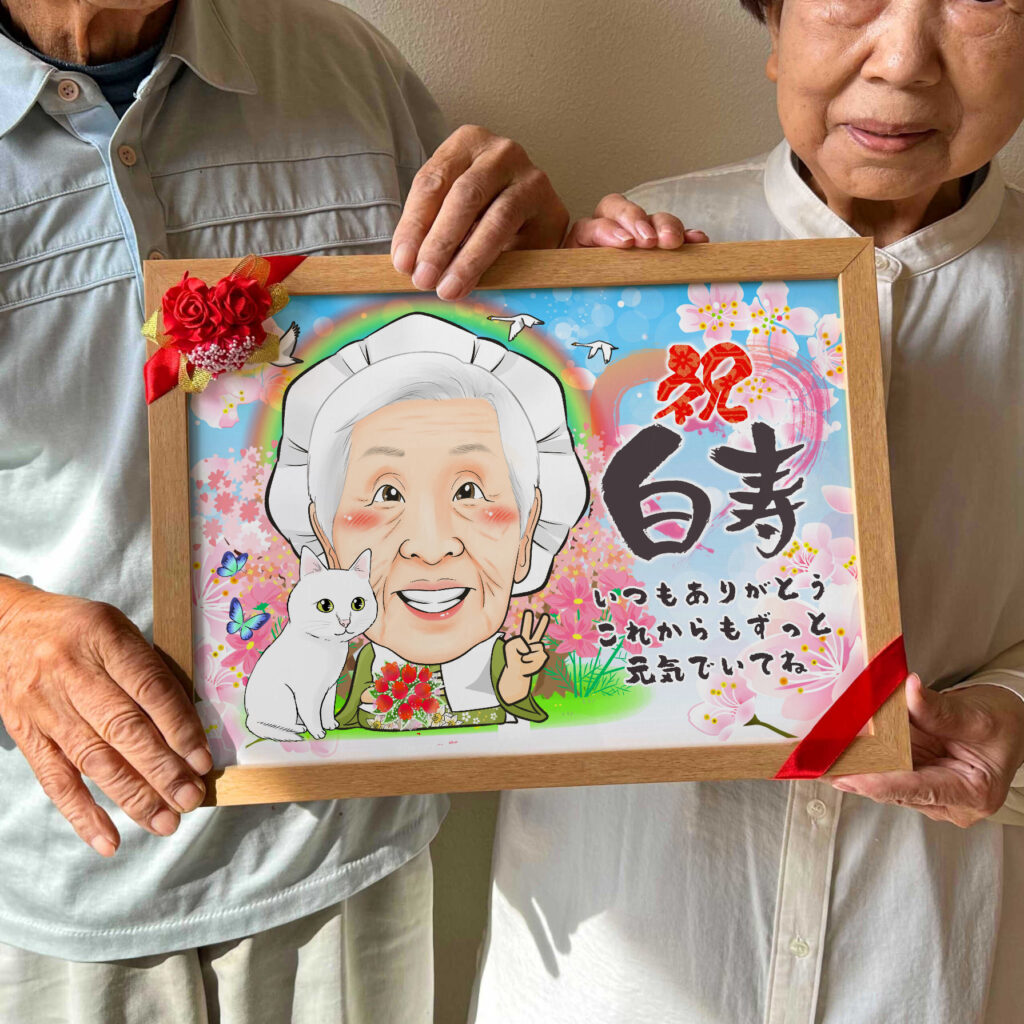 祝
白寿
いつもありがとう
これからもずっと
元気でいてね